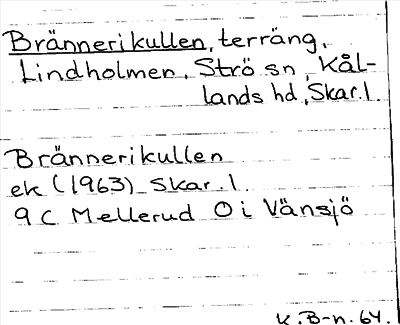 Brännerikullen, terräng,
Lindholmen, Strö sn, Kål-
lands hd, Skar.l.
Brännerikullen
ek (1963) Skar.l.
9 C Mellerud O i Vänsjö
K.B-n. 64.